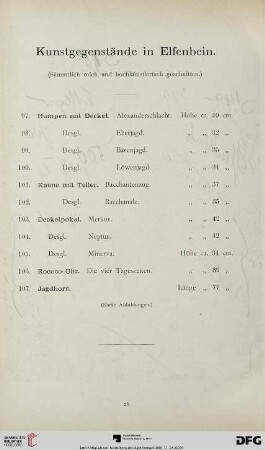 Kunstgegenstände in Elfenbein.
(Sämmtlich reich und hochkünstlerisch geschnitten.)
97. Humpen mit Deckel. Alexanderschlacht. Höhe cr. 40 cm
98. Desgl. Eberjagd. „ „ 32 „
99. Desgl. Bärenjagd. „ „ 35 „
100. Desgl. Löwenjagd. „ „ 34 „
101. Kanne mit Teller. Bacchantenzug. „ „ 37 „
102. Desgl. Bacchanale. „ „ 35 „
103. Deckelpokal. Merkur. „ „ 42 „
104. Desgl. Neptun. „ „ 42 „
105. Desgl. Minerva. Höhe cr. 34 cm.
106. Rococo-Uhr. Die vier Tageszeiten. „ „ 39 „
107. Jagdhorn. Länge „ 77 „
(Siehe Abbildungen.)
UNIVERSITÄTS-
BIBLIOTHEK
HEIDELBERG
DFG